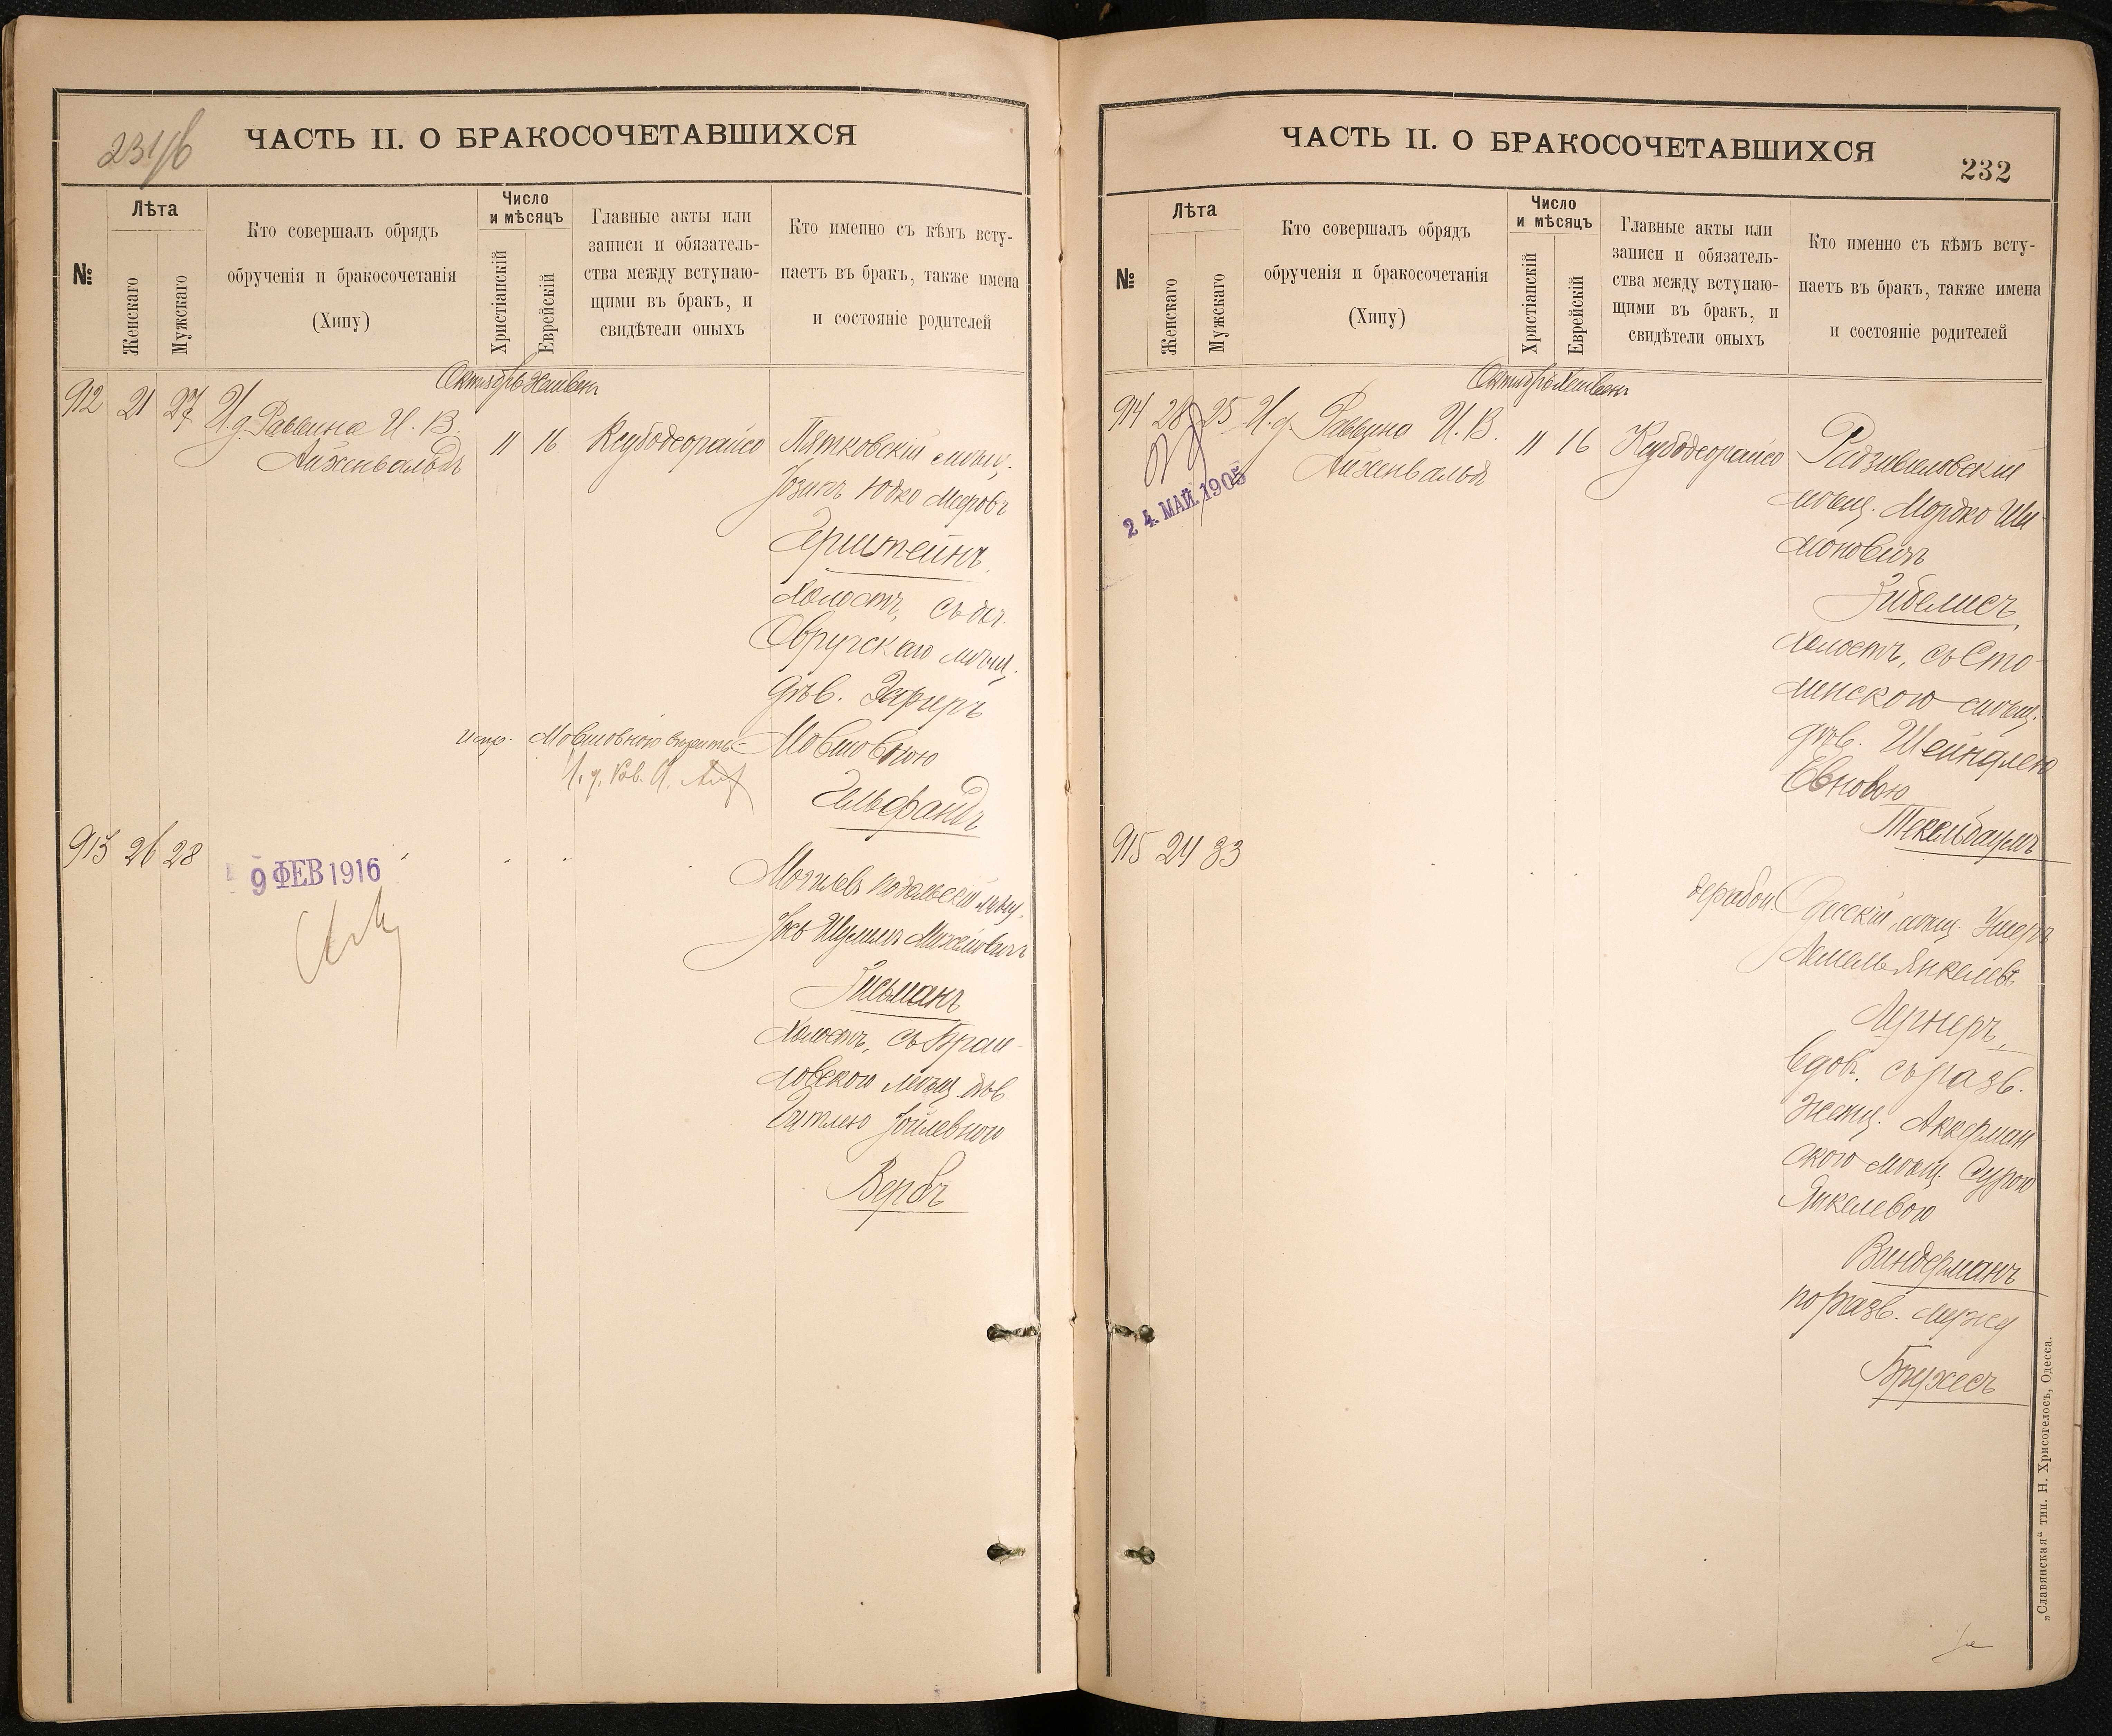 231/б
ЧАСТЬ II. О БРАКОСОЧЕТАВШИХСЯ
№
Лѣта
Женскаго
Мужскаго
Кто совершалъ обрядъ
обрученія и бракосочетанія
(Хипу)
Число
и мѣсяцъ
Христіанскій
Еврейскій
Главные акты или
записи и обязатель-
ства между вступаю-
щими въ бракъ, и
свидѣтели оныхъ
Кто именно съ кѣмъ всту-
паетъ въ бракъ, также имена
и состояніе родителей
Октябрь Хешвенъ
912 21 27 И. д. Раввина И. В.
Айзенвальдъ
11 16 Ксубодеорайсо
Пятковскій мѣщ.
Іозипъ Юдко Мееровъ
Герштейнъ,
холостъ, съ дѣ.
Овручскаго мѣщ.
дѣв. Эстеръ
Мовшовною
Гельфандъ
испр. Мовшовною вѣрить
И. д. Рав.
913 26 28
9 ФЕВ 1916
Могилевъ подольскій мѣщ.
Іось Шулимъ
Зисьманъ
холостъ, съ Браи-
ловскою мѣщ. дѣв.
Гитлею Іойлевною
Вербъ
ЧАСТЬ II. О БРАКОСОЧЕТАВШИХСЯ
232
№
Лѣта
Женскаго
Мужскаго
Кто совершалъ обрядъ
обрученія и бракосочетанія
(Хипу)
Число
и мѣсяцъ
Христіанскій
Еврейскій
Главные акты или
записи и обязатель-
ства между вступаю-
щими въ бракъ, и
свидѣтели оныхъ
Кто именно съ кѣмъ всту-
паетъ въ бракъ, также имена
и состояніе родителей
Октябрь Хешвенъ
914 28 25 И. д. Раввина И. В.
Айзенвальдъ
11 16 Ксубодеорайсо
24 МАЙ. 1905
Радзивиловскій
мѣщ. Мордко Ши-
моновичъ
Зибелисъ,
холостъ, съ Сто-
линскою мѣщ.
дѣв. Шейндлею
Евновою
Текельбаумъ
915 24 33
дерабон.
Одесскій мѣщ. Ушеръ
Лемель Янкелевъ
Лернеръ,
вдов. съ разв.
женщ. Аккерман-
скою мѣщ. Сурою
Янкелевою
Виндерманъ
по разв. мужу
Бружесъ
„Славянская“ тип. Н. Хрисогелосъ, Одесса.